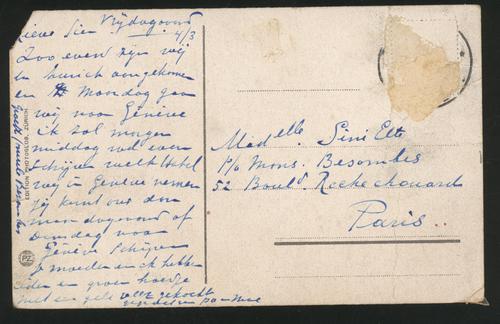 Lieve Sien Vrijdagavond
4/3
Zoo even zijn wij
in Zurich aangekomen
en Maandag gaan
wij naar Genève
ik zal morgen
middag wel even
schrijven welk Hotel
wij in Genève nemen
jij kunt ons dan
maandagavond of
Dinsdag naar
Genève schrijven
moeder en ik hebben
een groen hoedje
met een gele veer gekocht
EDITION PHOTOGLOB, ZÜRICH
PZ
Mad elle. Sini Elt
p/o Mons. Besombes
52 Bould Rochechouard
Paris..